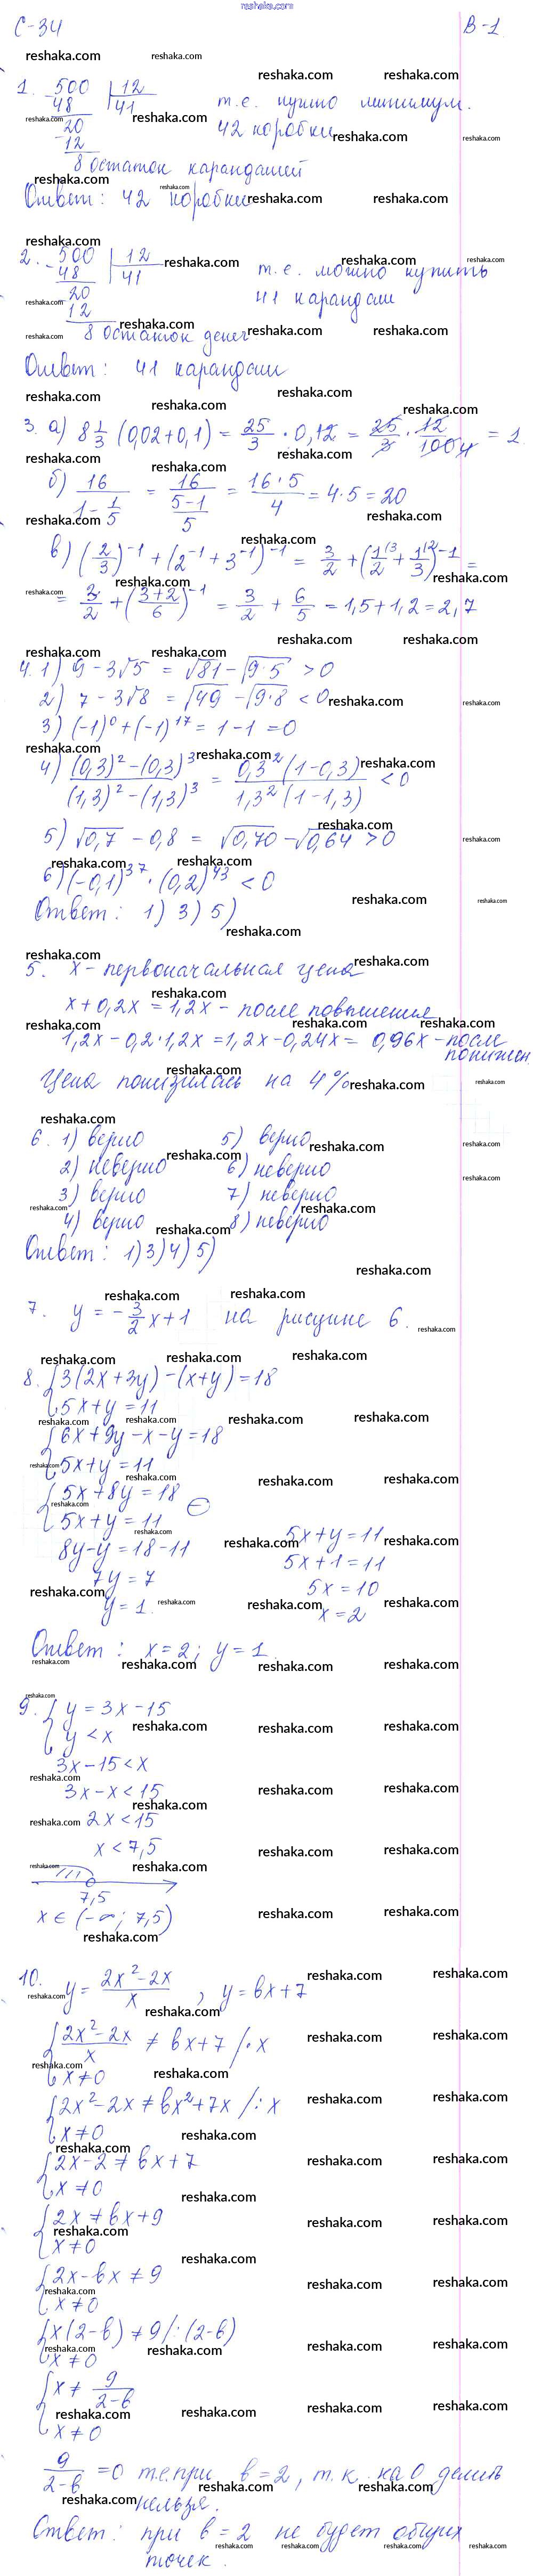 reshaka.com
С-34 В-1
1. 500 | 12
48 41 т.е. нужно минимум.
20 42 коробки
12
8 остаток карандашей
Ответ: 42 коробки
2. 500 | 12
48 41 т.е. можно купить
20 41 карандаш
12
8 остаток денег
Ответ: 41 карандаш
3. а) 8 1/3 (0,02+0,1) = 25/3 · 0,12 = 25/3 · 12/100 4 = 1.
б) 16/(1 - 1/5) = 16/((5-1)/5) = (16·5)/4 = 4·5 = 20
в) (2/3)^-1 + (2^-1 + 3^-1)^-1 = 3/2 + (1/2 + 1/3)^-1 =
= 3/2 + ((3+2)/6)^-1 = 3/2 + 6/5 = 1,5+1,2 = 2,7
4. 1) 9 - 3√5 = √81 - √9·5 > 0
2) 7 - 3√8 = √49 - √9·8 < 0
3) (-1)^0 + (-1)^17 = 1 - 1 = 0
4) ((0,3)^2 - (0,3)^3)/((1,3)^2 - (1,3)^3) = (0,3^2 (1-0,3))/(1,3^2 (1-1,3)) < 0
5) √0,7 - 0,8 = √0,70 - √0,64 > 0
6) (-0,1)^37 · (0,2)^43 < 0
Ответ: 1) 3) 5)
5. x - первоначальная цена
x + 0,2x = 1,2x - после повышения
1,2x - 0,2·1,2x = 1,2x - 0,24x = 0,96x - после
понижен.
Цена понизилась на 4%
6. 1) верно 5) верно
2) неверно 6) неверно
3) верно 7) неверно
4) верно 8) неверно
Ответ: 1) 3) 4) 5)
7. y = -3/2 x + 1 на рисунке 6.
8. { 3(2x+3y) - (x+y) = 18
5x + y = 11
{ 6x + 9y - x - y = 18
5x + y = 11
{ 5x + 8y = 18
5x + y = 11 ⊖
8y - y = 18 - 11 5x + y = 11
7y = 7 5x + 1 = 11
y = 1. 5x = 10
x = 2
Ответ: x = 2; y = 1.
9. { y = 3x - 15
y < x
3x - 15 < x
3x - x < 15
2x < 15
x < 7,5
7,5
x ∈ (-∞; 7,5)
10. y = (2x^2 - 2x)/x , y = bx + 7
{ (2x^2 - 2x)/x ≠ bx + 7 /·x
x ≠ 0
{ 2x^2 - 2x ≠ bx^2 + 7x /:x
x ≠ 0
{ 2x - 2 ≠ bx + 7
x ≠ 0
{ 2x ≠ bx + 9
x ≠ 0
{ 2x - bx ≠ 9
x ≠ 0
{ x(2 - b) ≠ 9 /:(2-b)
x ≠ 0
{ x ≠ 9/(2-b)
x ≠ 0
9/(2-b) = 0 т.е. при b = 2, т.к. на 0 делить
нельзя.
Ответ: при b = 2 не будет общих
точек.